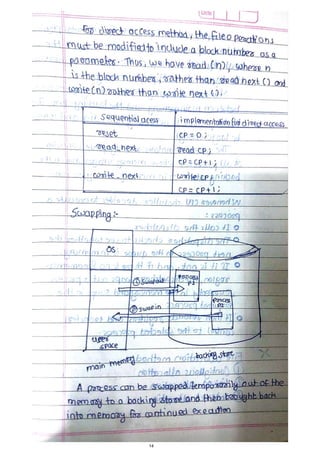 For direct access method, the file operations
must be modified to include a block number as a
parameter. Thus, we have read (n), where n
is the block number, rather than read next () and
write (n) rather than write next ().
Sequential acess implementation for direct access
reset CP = 0;
read_next read CP;
CP = CP+1;
write_next write CP;
CP = CP+1;
Swapping :-
OS
① Swapout
process P1
② swap in
process P2
user space
main memory
backing store
A process can be swapped temporarily out of the
memory to a backing store and then brought back
into memory for continued execution
14